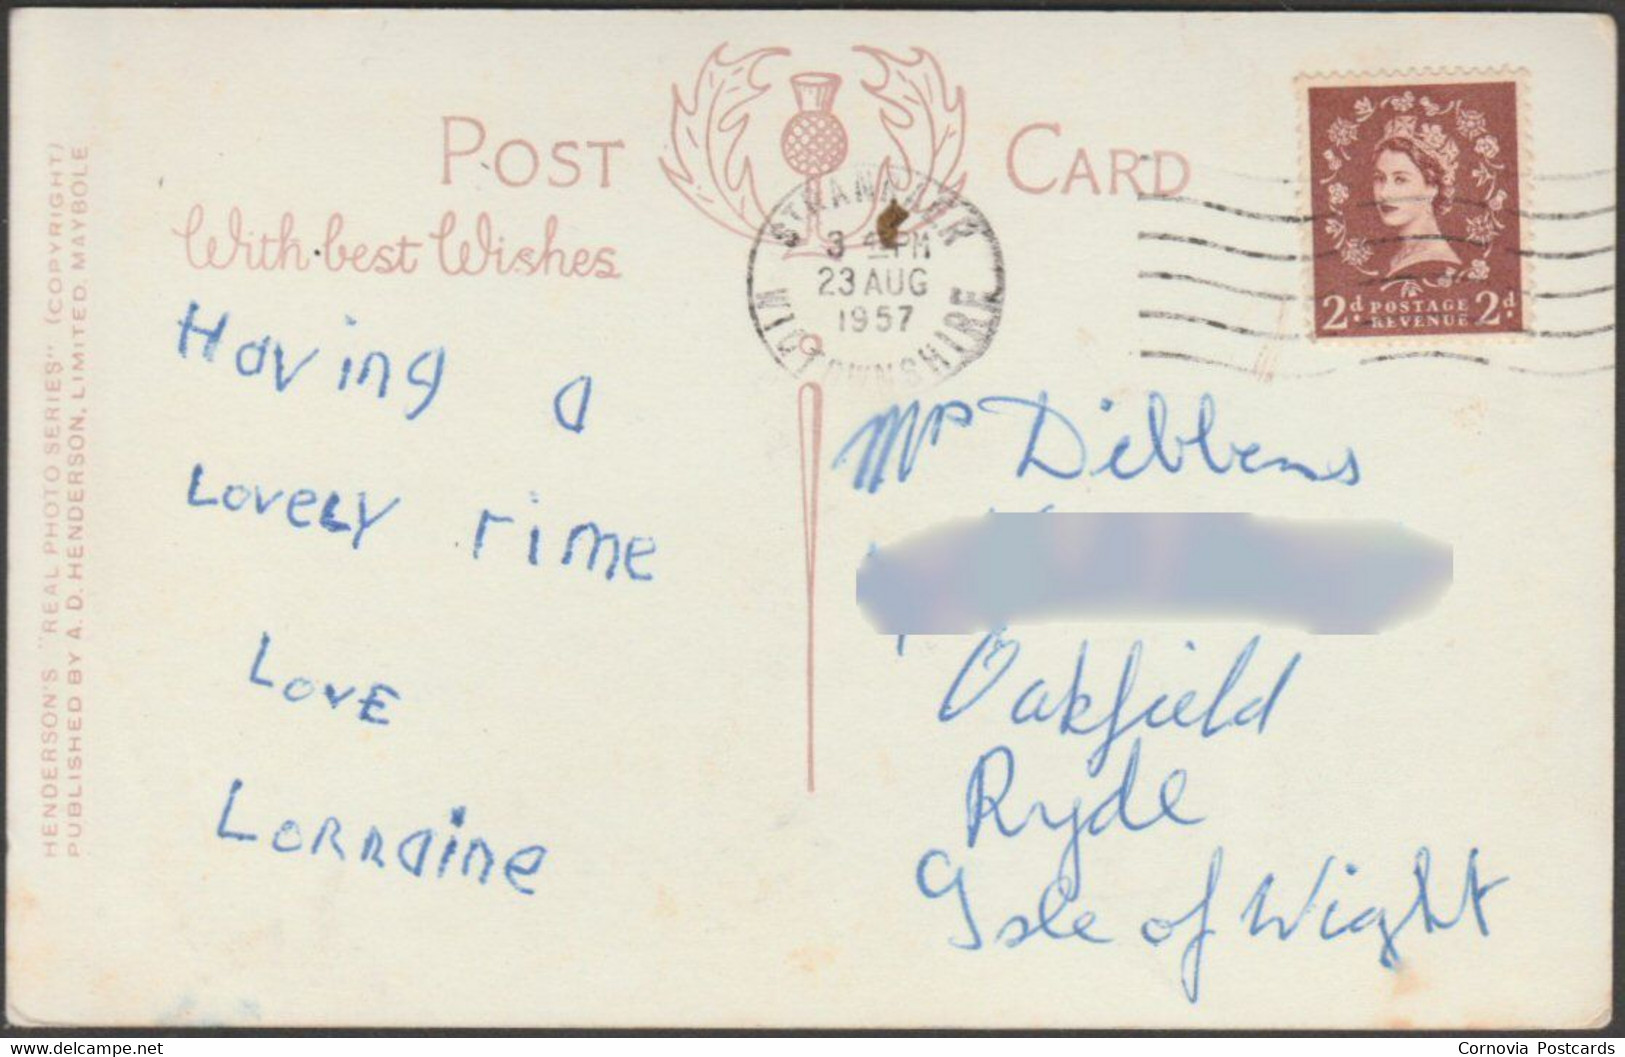 POST CARD
With best Wishes
HENDERSON'S "REAL PHOTO SERIES" (COPYRIGHT)
PUBLISHED BY A. D. HENDERSON, LIMITED, MAYBOLE
STRANRAER
3 45 PM
23 AUG
1957
WIGTOWNSHIRE
2d POSTAGE 2d
REVENUE
Having a
Lovely rime
Love
Lorraine
Mr Dibbens
Oakfield
Ryde
Isle of Wight
www.delcampe.net
Cornovia Postcards